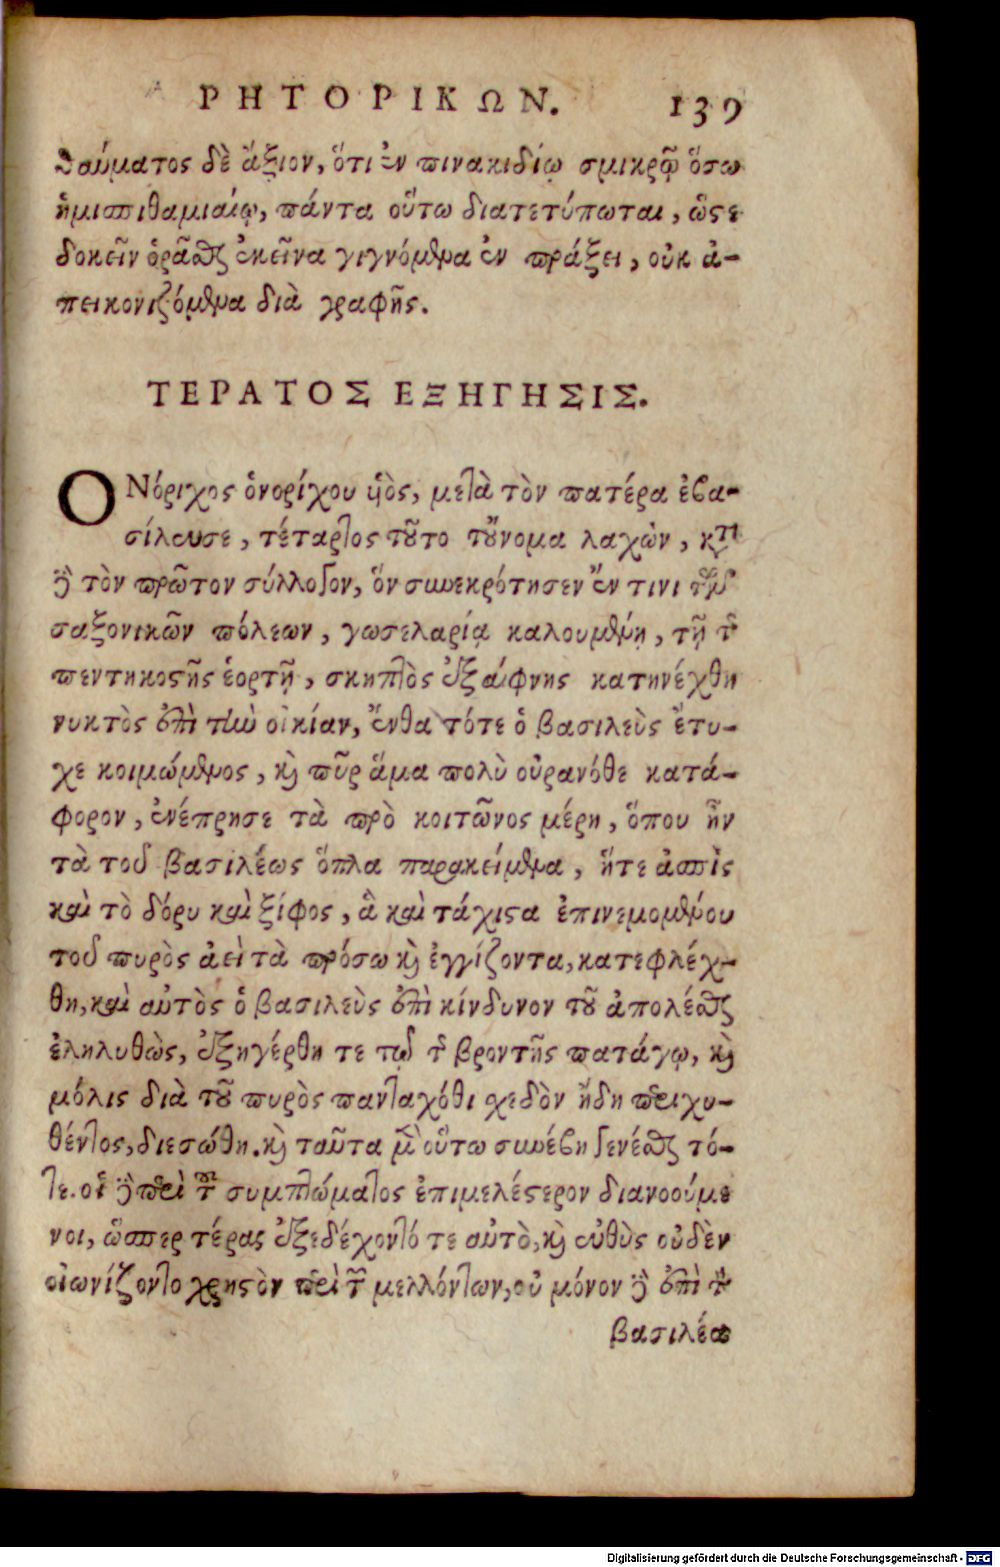 ΡΗΤΟΡΙΚΩΝ. 139
θαύματος δὲ ἄξιον, ὅτι ἐν πινακιδίῳ σμικρῷ ὅσω
ἡμισπιθαμιαίῳ, πάντα οὕτω διατετύπωται, ὥστε
δοκεῖν ὁρᾶσθαι ἐκεῖνα γιγνόμενα ἐν πράξει, οὐκ ἀ-
πεικονιζόμενα διὰ γραφῆς.
ΤΕΡΑΤΟΣ ΕΞΗΓΗΣΙΣ.
ΟΝόριχος ὁνορίχου ὑὸς, μετὰ τὸν πατέρα ἐβα-
σίλευσε, τέταρτος τοῦτο τοὔνομα λαχὼν, κατὰ
γὰρ τὸν πρῶτον σύλλογον, ὅν συνεκρότησεν ἔν τινι τῶν
σαξονικῶν πόλεων, γωσελαρίᾳ καλουμένῃ, τῇ τῆς
πεντηκοστῆς ἑορτῇ, σκηπτὸς ἐξαίφνης κατηνέχθη
νυκτὸς ἐπὶ τὴν οἰκίαν, ἔνθα τότε ὁ βασιλεὺς ἔτυ-
χε κοιμώμενος, καὶ πῦρ ἅμα πολὺ οὐρανόθε κατά-
φορον, ἐνέπρησε τὰ πρὸ κοιτῶνος μέρη, ὅπου ἦν
τὰ τοῦ βασιλέως ὅπλα παρακείμενα, ἥτε ἀσπὶς
καὶ τὸ δόρυ καὶ ξίφος, ἃ καὶ τάχιστα ἐπινεμομένου
τοῦ πυρὸς ἀεὶ τὰ πρόσω καὶ ἐγγίζοντα, κατεφλέχ-
θη, καὶ αὐτὸς ὁ βασιλεὺς ἐπὶ κίνδυνον τοῦ ἀπολέσθαι
ἐληλυθὼς, ἐξηγέρθη τε τῷ τῆς βροντῆς πατάγῳ, καὶ
μόλις διὰ τοῦ πυρὸς πανταχόθι σχεδὸν ἤδη περιχυ-
θέντος, διεσώθη. καὶ ταῦτα μὲν οὕτω συνέβη γενέσθαι τό-
τε. οἱ δὲ περὶ τοῦ συμπτώματος ἐπιμελέστερον διανοούμε
νοι, ὥσπερ τέρας ἐξεδέχοντό τε αὐτὸ, καὶ εὐθὺς οὐδὲν
οἰωνίζοντο χρηστὸν περὶ τῶν μελλόντων, οὐ μόνον δὲ ἐπὶ τὸν
βασιλέα
Digitalisierung gefördert durch die Deutsche Forschungsgemeinschaft - DFG